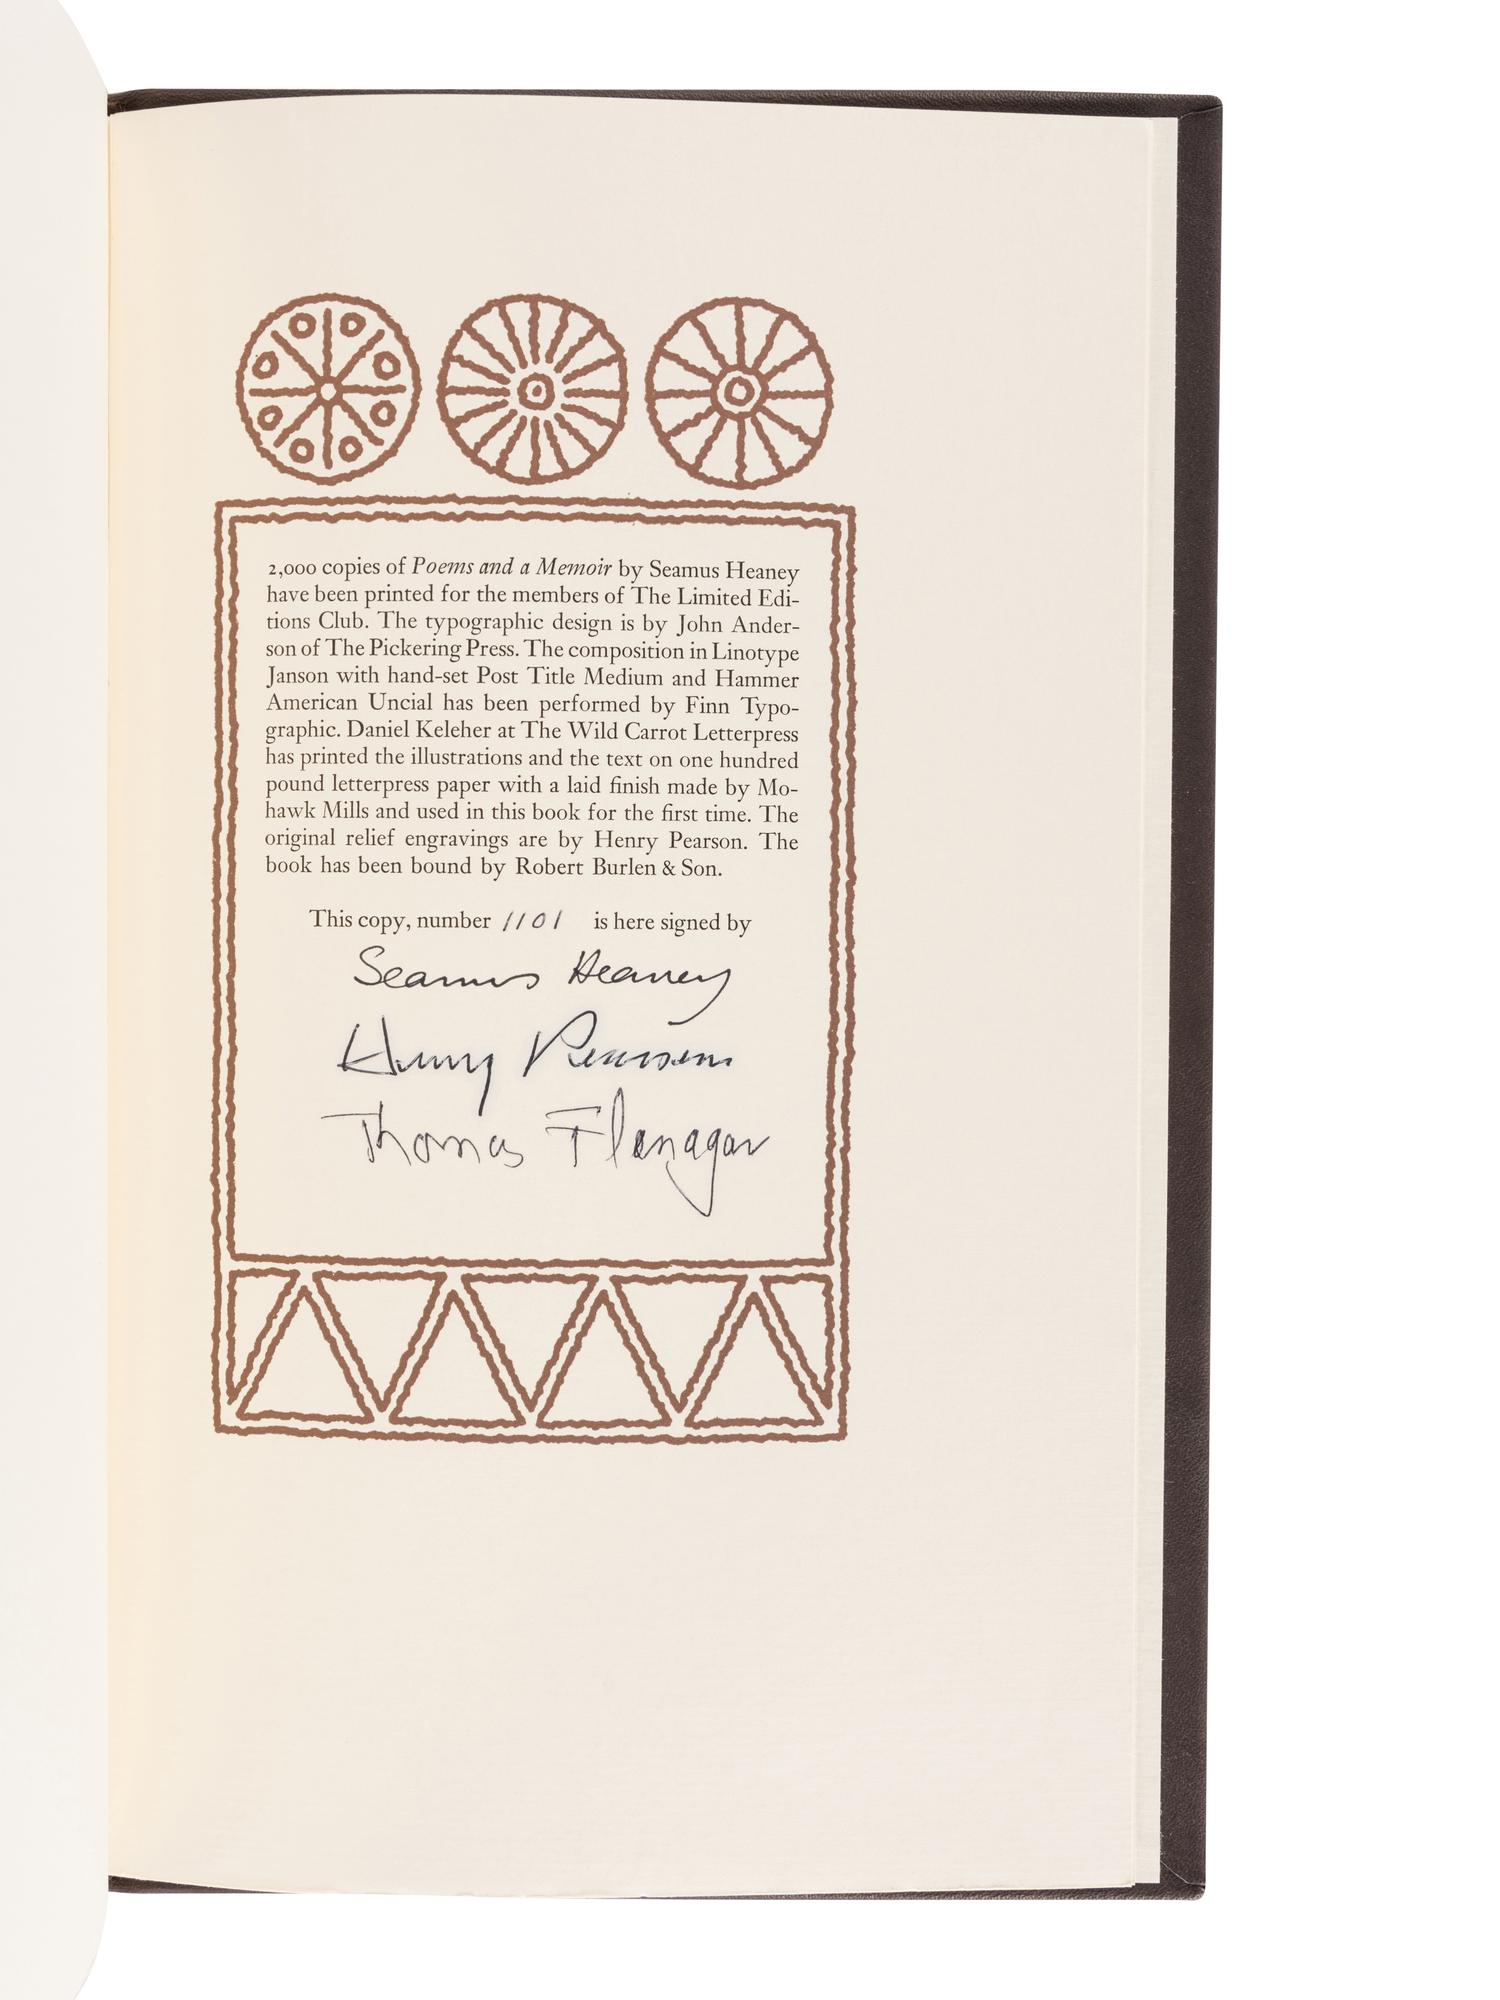 2,000 copies of Poems and a Memoir by Seamus Heaney
have been printed for the members of The Limited Edi-
tions Club. The typographic design is by John Ander-
son of The Pickering Press. The composition in Linotype
Janson with hand-set Post Title Medium and Hammer
American Uncial has been performed by Finn Typo-
graphic. Daniel Keleher at The Wild Carrot Letterpress
has printed the illustrations and the text on one hundred
pound letterpress paper with a laid finish made by Mo-
hawk Mills and used in this book for the first time. The
original relief engravings are by Henry Pearson. The
book has been bound by Robert Burlen & Son.
This copy, number 1101 is here signed by
Seamus Heaney
Henry Pearson
Thomas Flanagan